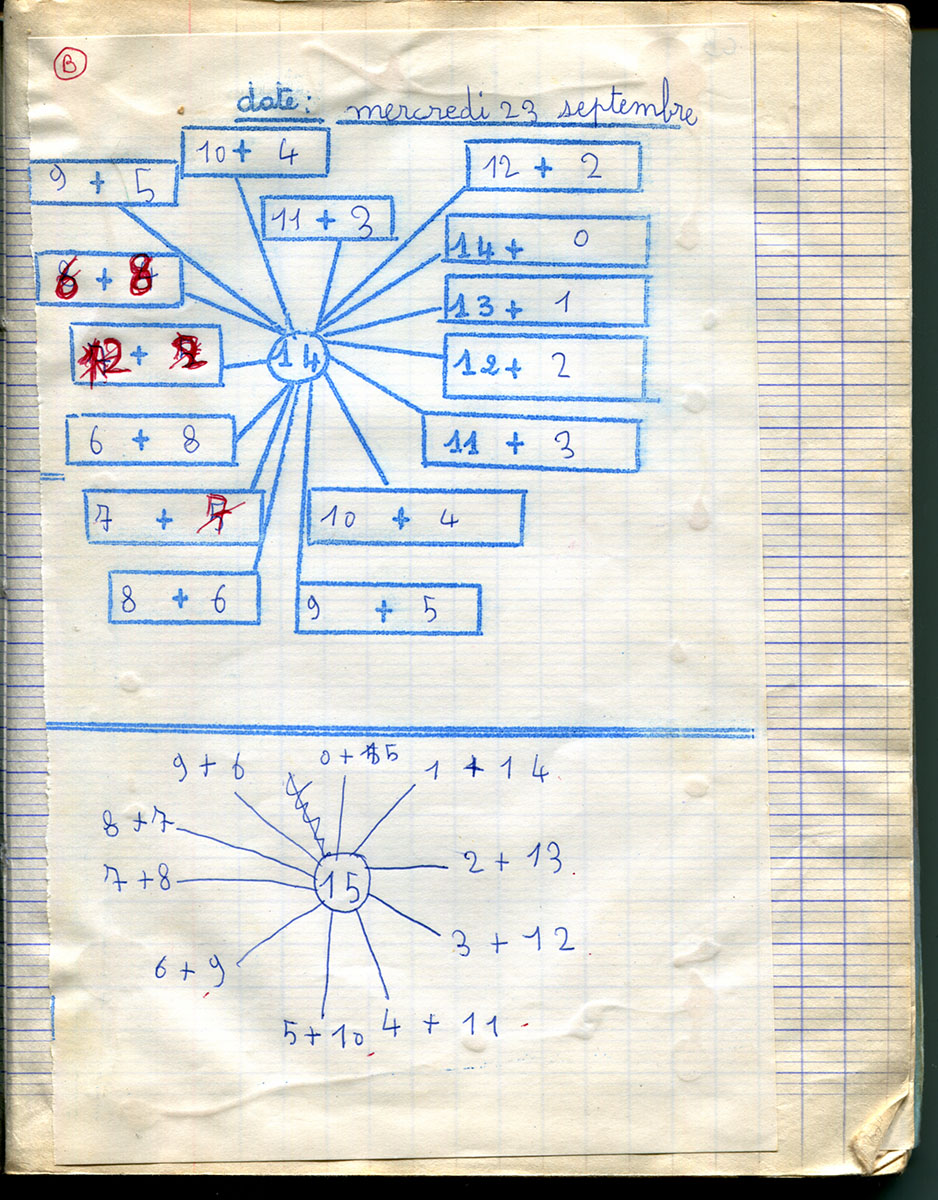 B
date: mercredi 23 septembre
10 + 4
9 + 5
12 + 2
11 + 3
14 + 0
6 + 8
13 + 1
12 + 2
14
12 + 2
6 + 8
11 + 3
7 + 7
10 + 4
8 + 6
9 + 5
9 + 6
0 + 15
1 + 14
8 + 7
2 + 13
7 + 8
15
3 + 12
6 + 9
5 + 10
4 + 11